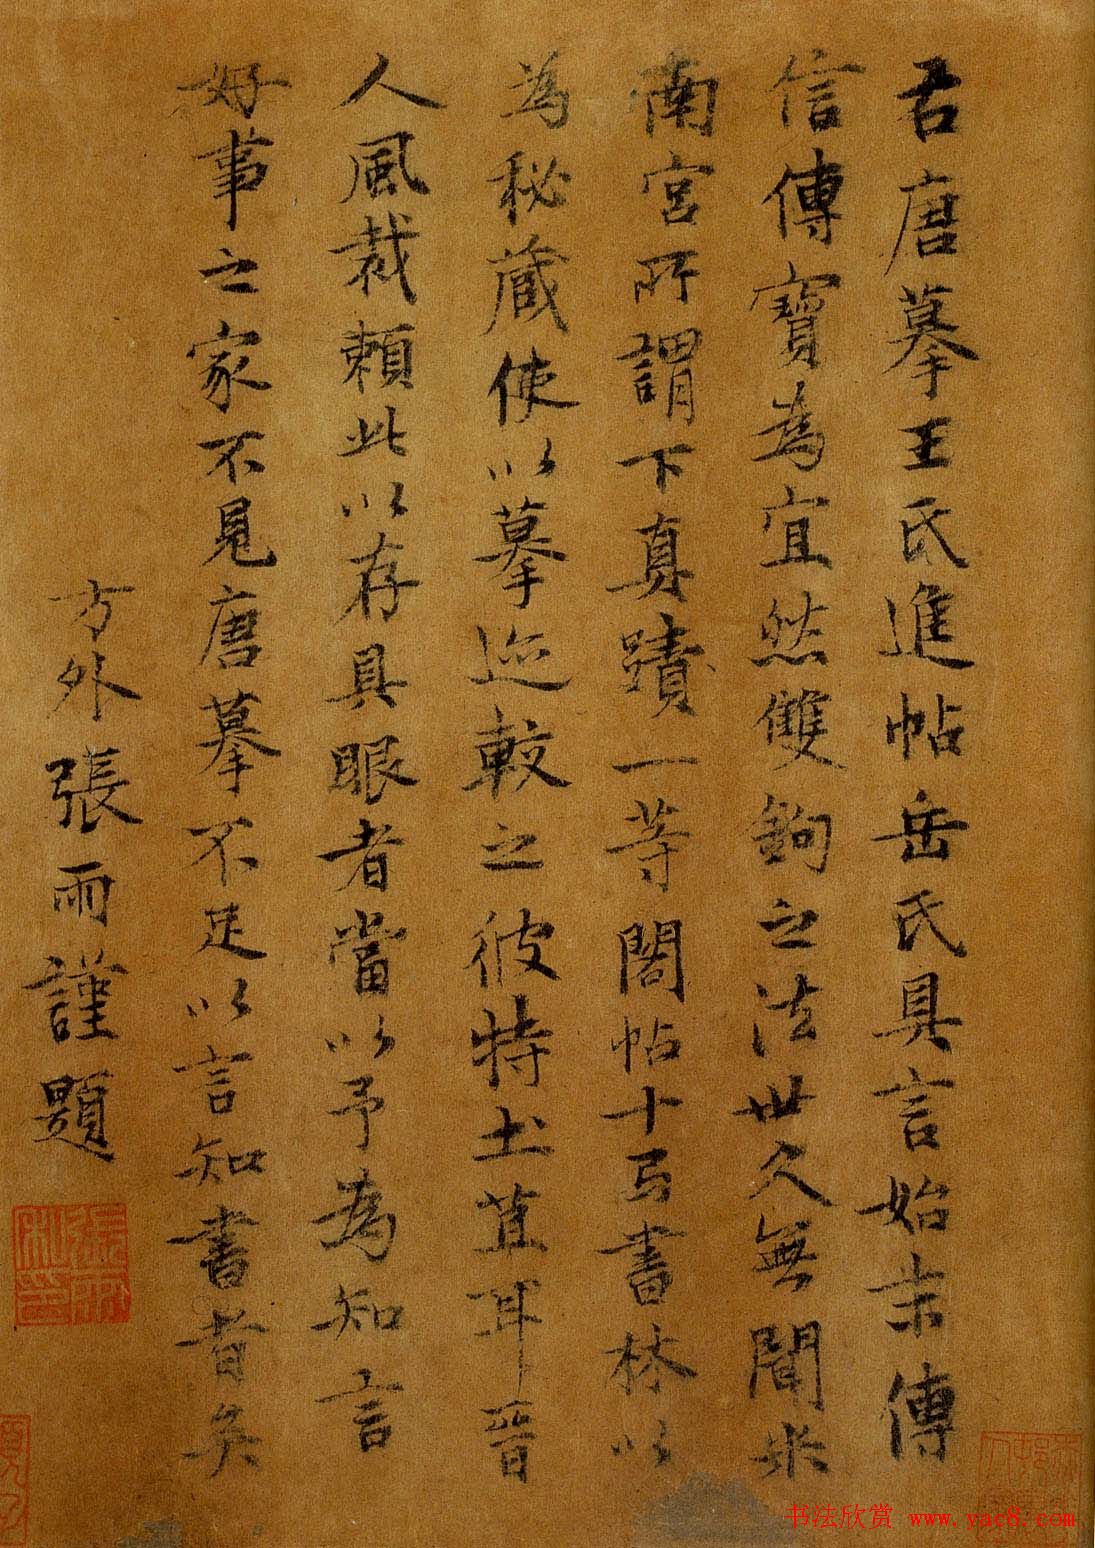 右唐摹王氏進帖岳氏具言始末傳
信傳寶為宜然雙鉤之法世久無聞米
南宮所謂下真蹟一等閣帖十弓書林以
為秘蔵使以摹迹較之彼特土苴耳晉
人風裁賴此以存具眼者當以予為知言
好事之家不見唐摹不足以言知書者矣
方外張雨謹題
书法欣赏 www.yac8.com